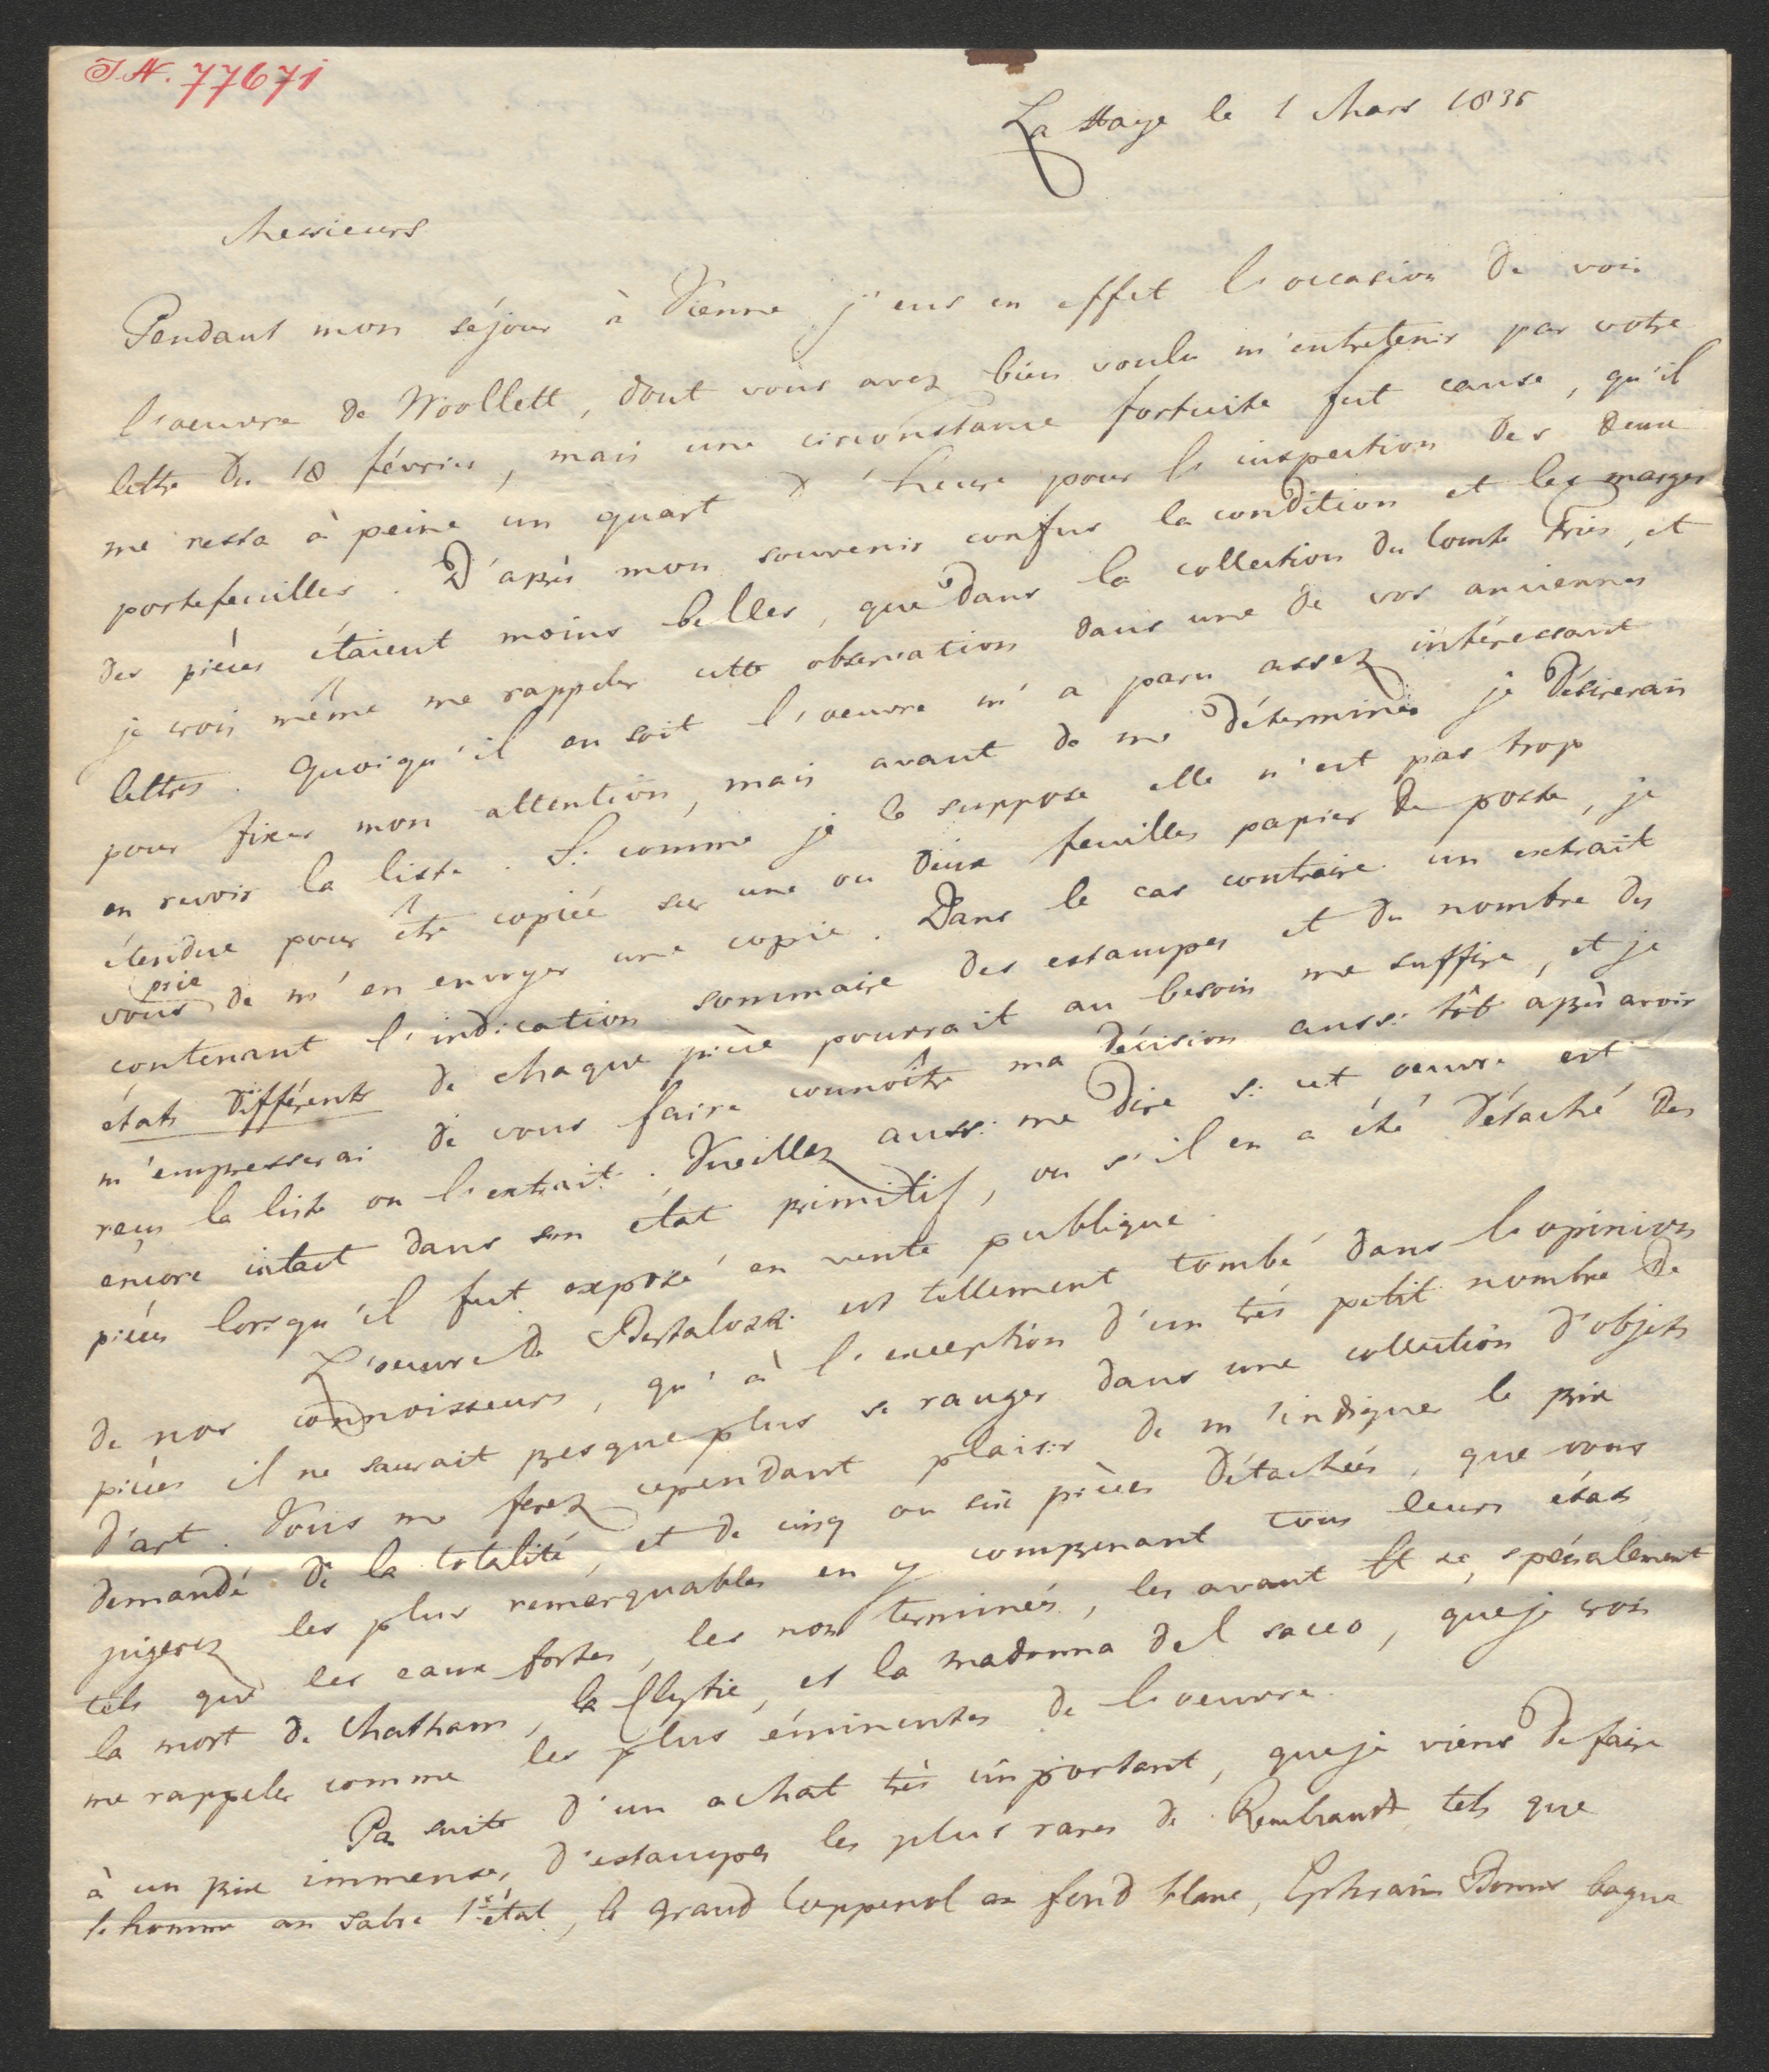 I.N. 77671
La Haye le 1 Mars 1835
Messieurs
Pendant mon séjour à Vienne j'eus en effet l'occasion de voir
l'oeuvre de Woollett, dont vous avez bien voulu m'entretenir par votre
lettre du 18 février, mais une circonstance fortuite fut cause, qu'il
me resta à peine un quart d'heure pour l'inspection des deux
portefeuilles. D'après mon souvenir confus la condition et les marges
des pièces étaient moins belles, que dans la collection du Comte Fries, et
je crois même me rappeler cette observation dans une de vos anciennes
lettres. Quoiqu'il en soit l'oeuvre m'a paru assez intéressant
pour fixer mon attention, mais avant de me déterminer je désirerais
en revoir la liste. Si comme je le suppose elle n'est pas trop
étendue pour être copiée sur une ou deux feuilles papier de poste, je
vous prie de m'en envoyer une copie. Dans le cas contraire un extrait
contenant l'indication sommaire des estampes et du nombre des
états différents de chaque pièce pourrait au besoin me suffire, et je
m'empresserai de vous faire connoître ma décision aussi tôt après avoir
reçu la liste ou l'extrait. Vueillez aussi me dire si cet oeuvre est
encore intact dans son état primitif, ou s'il en a été détaché des
pièces lorsqu'il fut exposé en vente publique.
L'oeuvre de Bartolozzi est tellement tombé dans l'opinion
de nos connoisseurs, qu'à l'exception d'un très petit nombre de
pièces il ne saurait presque plus se ranger dans une collection d'objets
d'art. Vous me ferez cependant plaisir de m'indiquer le prix
demandé de la totalité, et de cinq ou six pièces détachées, que vous
jugerez les plus remarquables en y comprenant tous leurs états
tels que les eaux fortes, les non terminés, les avant ll &c, spécialement
la mort de Chatham, la Clytie, et la madonna del sacco, que je crois
me rappeler comme les plus éminentes de l'oeuvre.
Par suite d'un achat très important, que je viens de faire
à un prix immense, d'estampes les plus rares de Rembrandt tels que
l'homme au sabre 1r état, le grand Coppenol au fond blanc, Ephraim Bonus bague